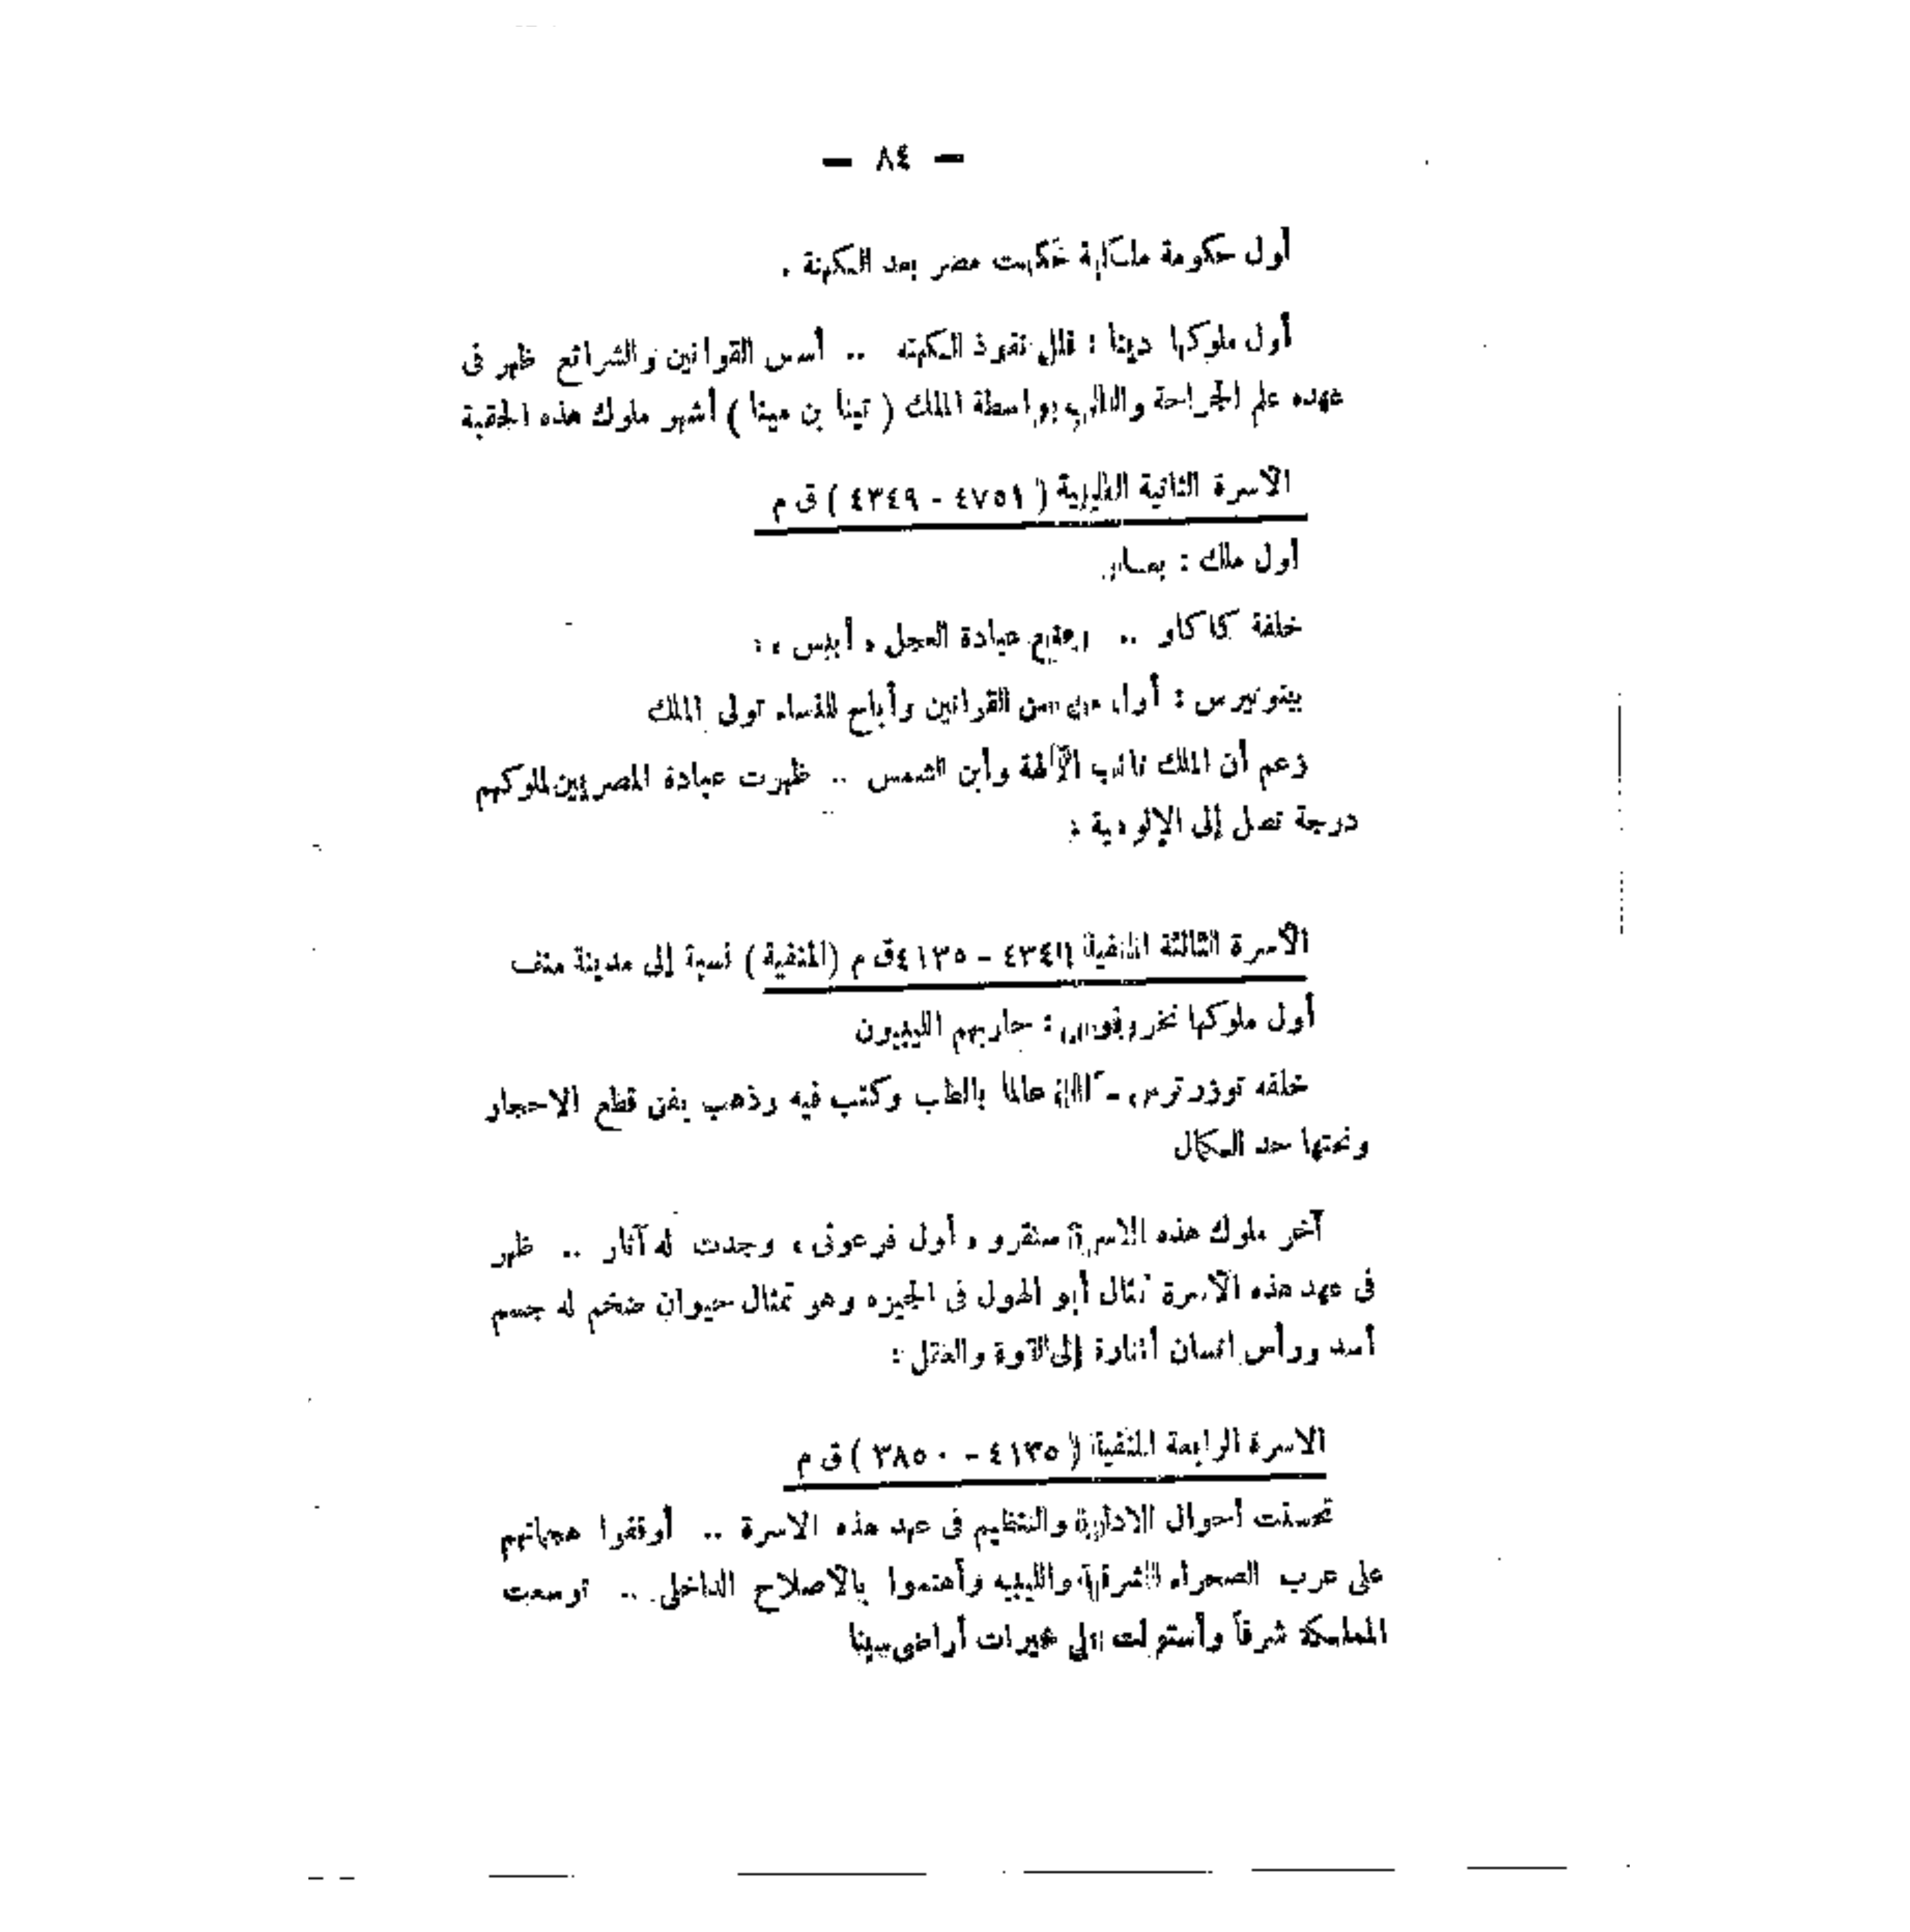 — ٨٤ —
أول حكومة ملكية حكمت مصر بعد الكهنة .
أول ملوكها مينا : قلل نفوذ الكهنه .. أسس القوانين والشرائع ظهر فى
عهده علم الجراحة والطب بواسطة الملك ( تيتا بن مينا ) أشهر ملوك هذه الحقبة
الأسرة الثانية الطينية ( ٤٧٥١ - ٤٣٤٩ ) ق م
أول ملك :
خلفة كاكاو .. عبادة العجل « أبيس » :
بينوتيرس : أول من سن القوانين وأباح للنساء تولى الملك
زعم أن الملك نائب الآلهة وأبن الشمس .. ظهرت عبادة المصريين لملوكهم
درجة تصل إلى الإلوهية :
الأسرة الثالثة المنفية ٤٣٤٩ - ٤١٣٥ق م (المنفية ) نسبة إلى مدينة منف
أول ملوكها نخروفوس : حاربهم الليبيون
خلفه توزرترس - كان عالما بالطب وكتب فيه وذهب بفن قطع الاحجار
ونحتها حد الكمال
آخر ملوك هذه الاسرة سنفرو « أول فرعونى » وجدت له آثار .. ظهر
فى عهد هذه الأسرة تمثال أبو الهول فى الجيزه وهو تمثال حيوان ضخم له جسم
أسد ورأس انسان أشارة إلى القوة والعقل :
الاسرة الرابعة المنفية ( ٤١٣٥ - ٣٨٥٠ ) ق م
تحسنت أحوال الادارة والتنظيم فى عهد هذه الاسرة .. أوقفوا هجماتهم
على عرب الصحراء الشرقية والليبيه وأهتموا بالاصلاح الداخلى .. توسعت
المملكة شرقاً وأستولت على خيرات أراضى سينا